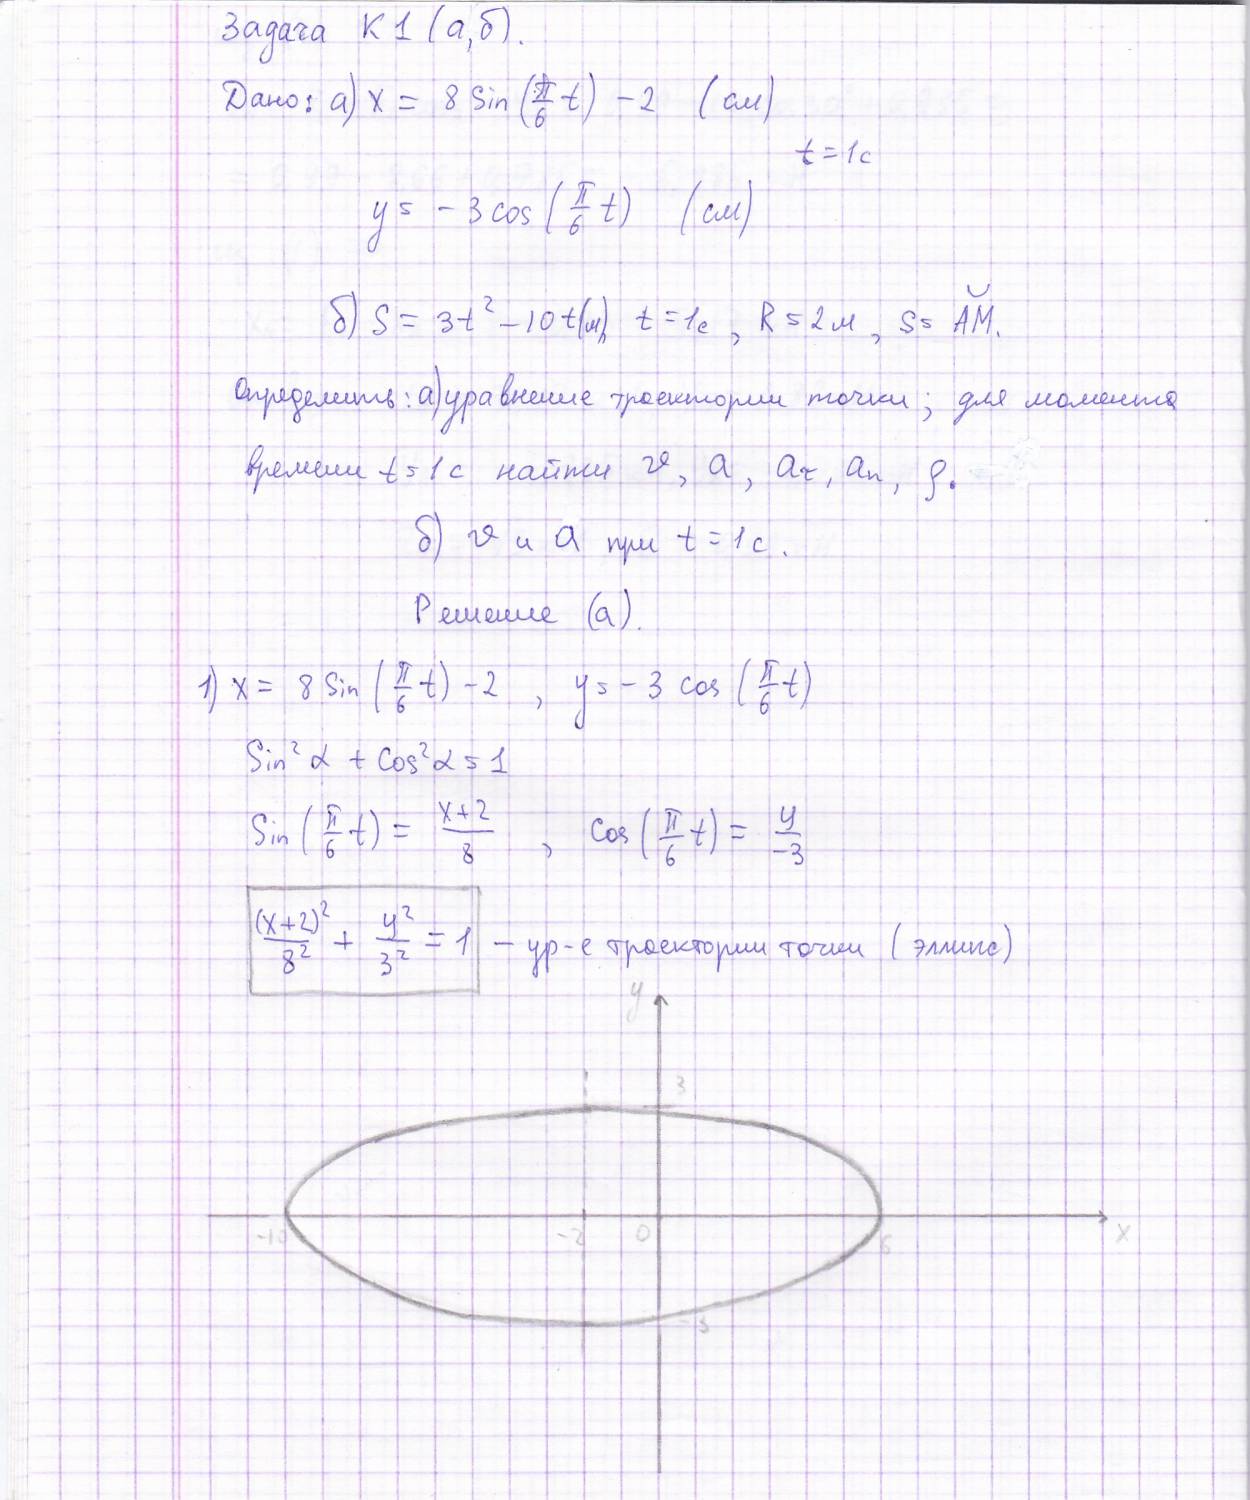 Задача К1 (а,б).
Дано: а) x = 8 Sin(π/6 t) - 2 (см)
t = 1с
y = -3 cos(π/6 t) (см)
б) S = 3t² - 10t(м), t = 1с, R = 2м, S = ÂM.
Определить: а) уравнение траектории точки; для момента
времени t = 1с найти v, a, aτ, an, ρ.
б) v и a при t = 1с.
Решение (а).
1) x = 8 Sin(π/6 t) - 2, y = -3 cos(π/6 t)
Sin²α + Cos²α = 1
Sin(π/6 t) = (x+2)/8, Cos(π/6 t) = y/-3
(x+2)²/8² + y²/3² = 1 - ур-е траектории точки (эллипс)
y
3
-10 -2 0 6 x
-3